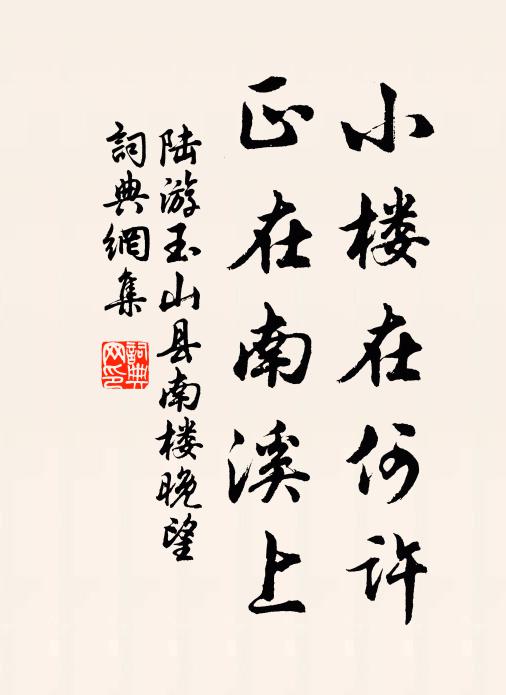 小楼在何许
正在南溪上
陆游玉山县南楼晚望
詞典網集
詞典
网印